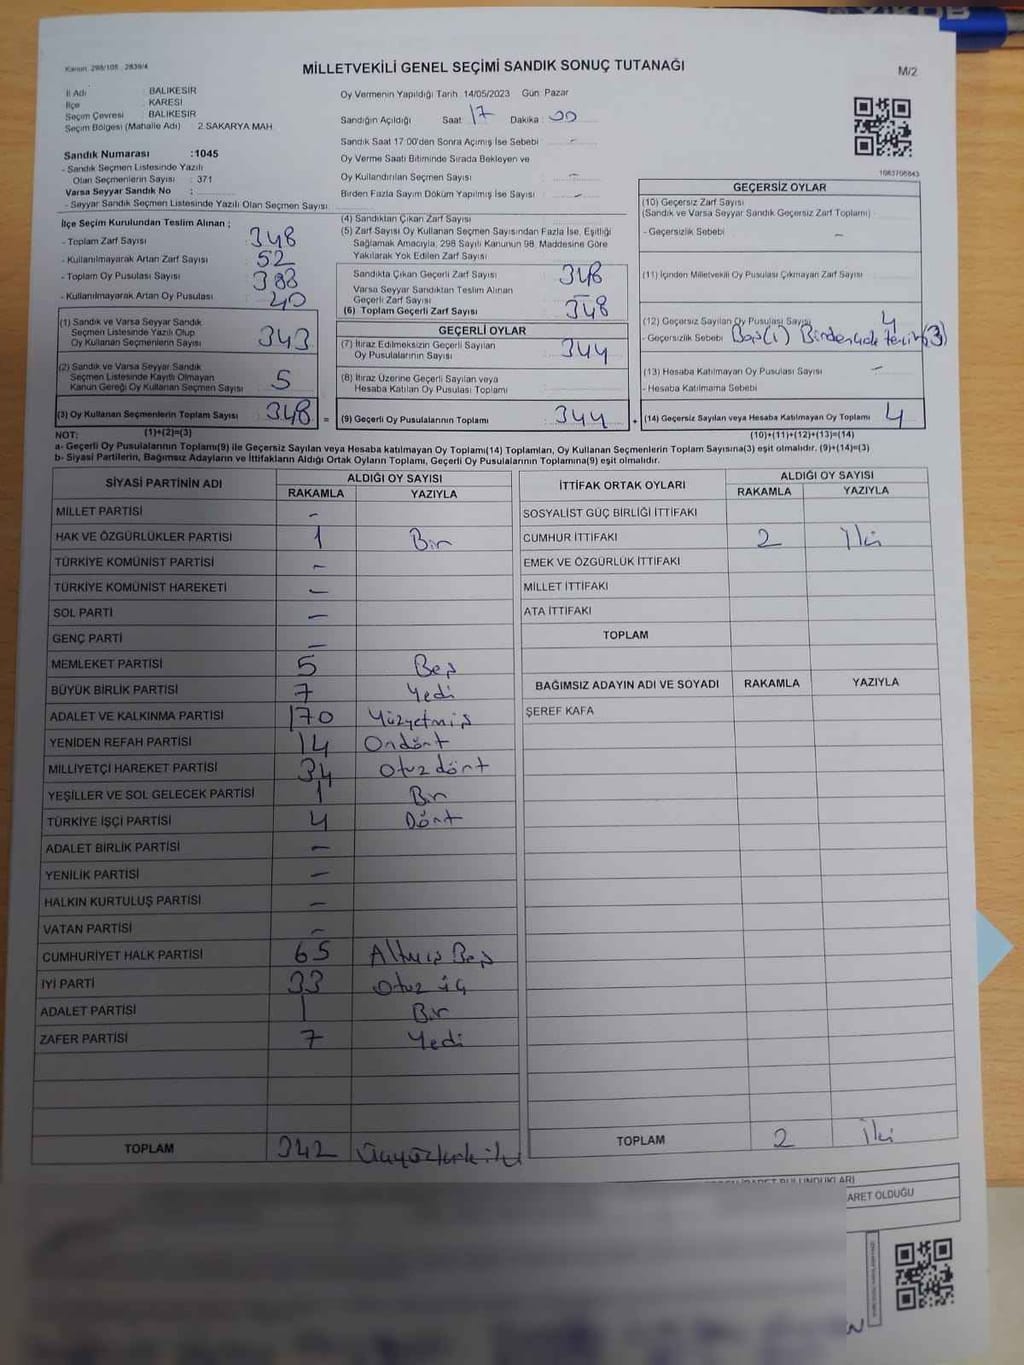 Kanun: 298/105 2839/4
MİLLETVEKİLİ GENEL SEÇİMİ SANDIK SONUÇ TUTANAĞI
M/2
İl Adı : BALIKESİR
İlçe : KARESİ
Seçim Çevresi : BALIKESİR
Seçim Bölgesi (Mahalle Adı) : 2 SAKARYA MAH.
Sandık Numarası :1045
- Sandık Seçmen Listesinde Yazılı
Olan Seçmenlerin Sayısı : 371
Varsa Seyyar Sandık No :
- Seyyar Sandık Seçmen Listesinde Yazılı Olan Seçmen Sayısı:
Oy Vermenin Yapıldığı Tarih: 14/05/2023 Gün: Pazar
Sandığın Açıldığı Saat: 17 Dakika: 00
Sandık Saat 17:00'den Sonra Açımış İse Sebebi : -
Oy Verme Saati Bitiminde Sırada Bekleyen ve
Oy Kullandırılan Seçmen Sayısı : -
Birden Fazla Sayım Döküm Yapılmış İse Sayısı : -
1063706843
İlçe Seçim Kurulundan Teslim Alınan ;
- Toplam Zarf Sayısı 348
- Kullanılmayarak Artan Zarf Sayısı 52
- Toplam Oy Pusulası Sayısı 388
- Kullanılmayarak Artan Oy Pusulası 40
(1) Sandık ve Varsa Seyyar Sandık
Seçmen Listesinde Yazılı Olup
Oy Kullanan Seçmenlerin Sayısı 343
(2) Sandık ve Varsa Seyyar Sandık
Seçmen Listesinde Kayıtlı Olmayan
Kanun Gereği Oy Kullanan Seçmen Sayısı 5
(3) Oy Kullanan Seçmenlerin Toplam Sayısı 348 =
(1)+(2)=(3)
(4) Sandıktan Çıkan Zarf Sayısı
(5) Zarf Sayısı Oy Kullanan Seçmen Sayısından Fazla İse, Eşitliği
Sağlamak Amacıyla, 298 Sayılı Kanunun 98. Maddesine Göre
Yakılarak Yok Edilen Zarf Sayısı
Sandıkta Çıkan Geçerli Zarf Sayısı 348
Varsa Seyyar Sandıktan Teslim Alınan
Geçerli Zarf Sayısı -
(6) Toplam Geçerli Zarf Sayısı 348
GEÇERLİ OYLAR
(7) İtiraz Edilmeksizin Geçerli Sayılan
Oy Pusulalarının Sayısı 344
(8) İtiraz Üzerine Geçerli Sayılan veya
Hesaba Katılan Oy Pusulası Toplamı
(9) Geçerli Oy Pusulalarının Toplamı 344 +
GEÇERSİZ OYLAR
(10) Geçersiz Zarf Sayısı
(Sandık ve Varsa Seyyar Sandık Geçersiz Zarf Toplamı)
- Geçersizlik Sebebi : -
(11) İçinden Milletvekili Oy Pusulası Çıkmayan Zarf Sayısı
(12) Geçersiz Sayılan Oy Pusulası Sayısı 4
- Geçersizlik Sebebi Boş(1) Birden çok tercih(3)
(13) Hesaba Katılmayan Oy Pusulası Sayısı -
- Hesaba Katılmama Sebebi
(14) Geçersiz Sayılan veya Hesaba Katılmayan Oy Toplamı 4
(10)+(11)+(12)+(13)=(14)
NOT:
a- Geçerli Oy Pusulalarının Toplamı(9) ile Geçersiz Sayılan veya Hesaba Katılmayan Oy Toplamı(14) Toplamları, Oy Kullanan Seçmenlerin Toplam Sayısına(3) eşit olmalıdır. (9)+(14)=(3)
b- Siyasi Partilerin, Bağımsız Adayların ve İttifakların Aldığı Ortak Oyların Toplamı, Geçerli Oy Pusulalarının Toplamına(9) eşit olmalıdır.
SİYASİ PARTİNİN ADI ALDIĞI OY SAYISI
RAKAMLA YAZIYLA
MİLLET PARTİSİ -
HAK VE ÖZGÜRLÜKLER PARTİSİ 1 Bir
TÜRKİYE KOMÜNİST PARTİSİ -
TÜRKİYE KOMÜNİST HAREKETİ -
SOL PARTİ -
GENÇ PARTİ -
MEMLEKET PARTİSİ 5 Beş
BÜYÜK BİRLİK PARTİSİ 7 Yedi
ADALET VE KALKINMA PARTİSİ 170 Yüzyetmiş
YENİDEN REFAH PARTİSİ 14 Ondört
MİLLİYETÇİ HAREKET PARTİSİ 34 Otuzdört
YEŞİLLER VE SOL GELECEK PARTİSİ 1 Bir
TÜRKİYE İŞÇİ PARTİSİ 4 Dört
ADALET BİRLİK PARTİSİ -
YENİLİK PARTİSİ -
HALKIN KURTULUŞ PARTİSİ -
VATAN PARTİSİ -
CUMHURİYET HALK PARTİSİ 65 Altmış Beş
İYİ PARTİ 33 Otuz üç
ADALET PARTİSİ 1 Bir
ZAFER PARTİSİ 7 Yedi
TOPLAM 342 Üçyüzkırkiki
İTTİFAK ORTAK OYLARI ALDIĞI OY SAYISI
RAKAMLA YAZIYLA
SOSYALİST GÜÇ BİRLİĞİ İTTİFAKI
CUMHUR İTTİFAKI 2 İki
EMEK VE ÖZGÜRLÜK İTTİFAKI
MİLLET İTTİFAKI
ATA İTTİFAKI
TOPLAM
BAĞIMSIZ ADAYIN ADI VE SOYADI RAKAMLA YAZIYLA
ŞEREF KAFA
TOPLAM 2 İki
ARET OLDUĞU